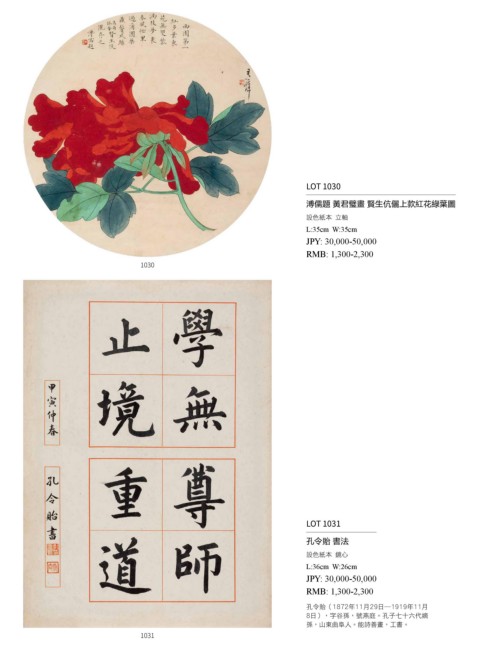 LOT 1030
溥儒題 黃君璧畫 賢生伉儷上款紅花綠葉圖
設色紙本 立軸
L:35cm W:35cm
JPY: 30,000-50,000
RMB: 1,300-2,300
1030
學無
止境
尊師
重道
甲寅仲春
孔令貽書
LOT 1031
孔令貽 書法
設色紙本 鏡心
L:36cm W:26cm
JPY: 30,000-50,000
RMB: 1,300-2,300
孔令貽（1872年11月29日—1919年11月
8日），字谷孫，號燕庭，孔子七十六代嫡
孫，山東曲阜人。能詩善畫，工書。
1031